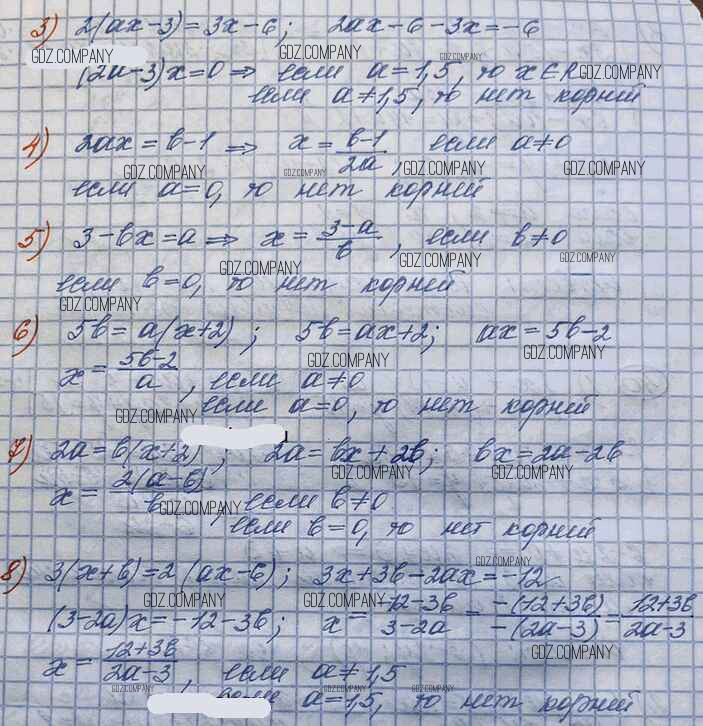 3) 2(ax-3)=3x-6; 2ax-6-3x=-6
GDZ.COMPANY GDZ.COMPANY GDZ.COMPANY
(2a-3)x=0 ⇒ если a=1,5, то x∈R GDZ.COMPANY
если a≠1,5, то нет корней
4) 2ax=b-1 ⇒ x=(b-1)/(2a), если a≠0
GDZ.COMPANY GDZ.COMPANY GDZ.COMPANY GDZ.COMPANY
если a=0, то нет корней
5) 3-bx=a ⇒ x=(3-a)/b, если b≠0
GDZ.COMPANY GDZ.COMPANY GDZ.COMPANY
если b=0, то нет корней
GDZ.COMPANY
6) 5b=a(x+2); 5b=ax+2; ax=5b-2
GDZ.COMPANY GDZ.COMPANY
x=(5b-2)/a, если a≠0
GDZ.COMPANY если a=0, то нет корней
7) 2a=b(x+2); 2a=bx+2b; bx=2a-2b
GDZ.COMPANY GDZ.COMPANY
x=2(a-b)/b, если b≠0
GDZ.COMPANY
если b=0, то нет корней
GDZ.COMPANY
8) 3(x+b)=2(ax-6); 3x+3b-2ax=-12
GDZ.COMPANY GDZ.COMPANY
(3-2a)x=-12-3b; x=(-12-3b)/(3-2a)=-(12+3b)/-(2a-3)=(12+3b)/(2a-3)
GDZ.COMPANY
x=(12+3b)/(2a-3), если a≠1,5
GDZ.COMPANY GDZ.COMPANY GDZ.COMPANY
если a=1,5, то нет корней